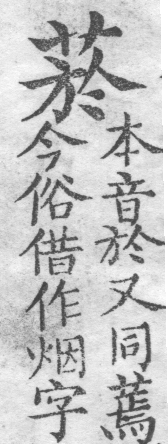 菸
本音於又同蔫
今俗借作烟字